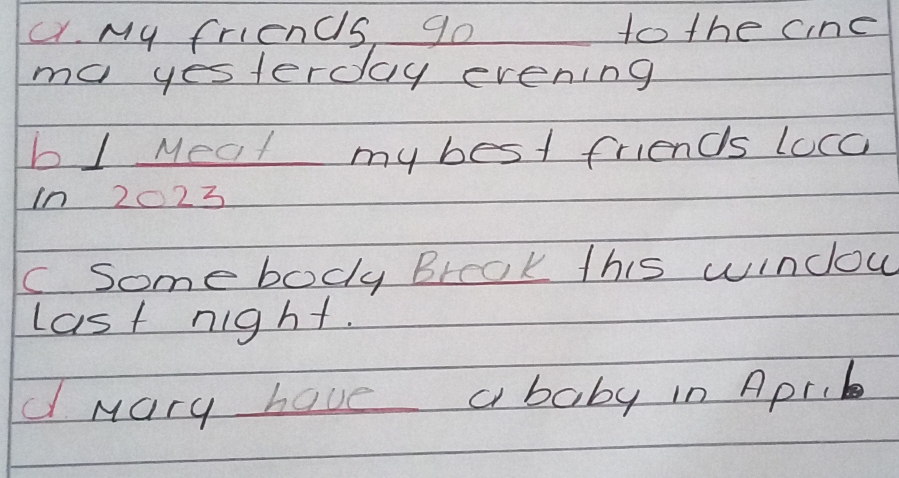 a. My friends go to the cine
ma yesterday evening
b I Meat my best friends loca
in 2023
c Some body Break this window
Last night.
d Mary have a baby in April